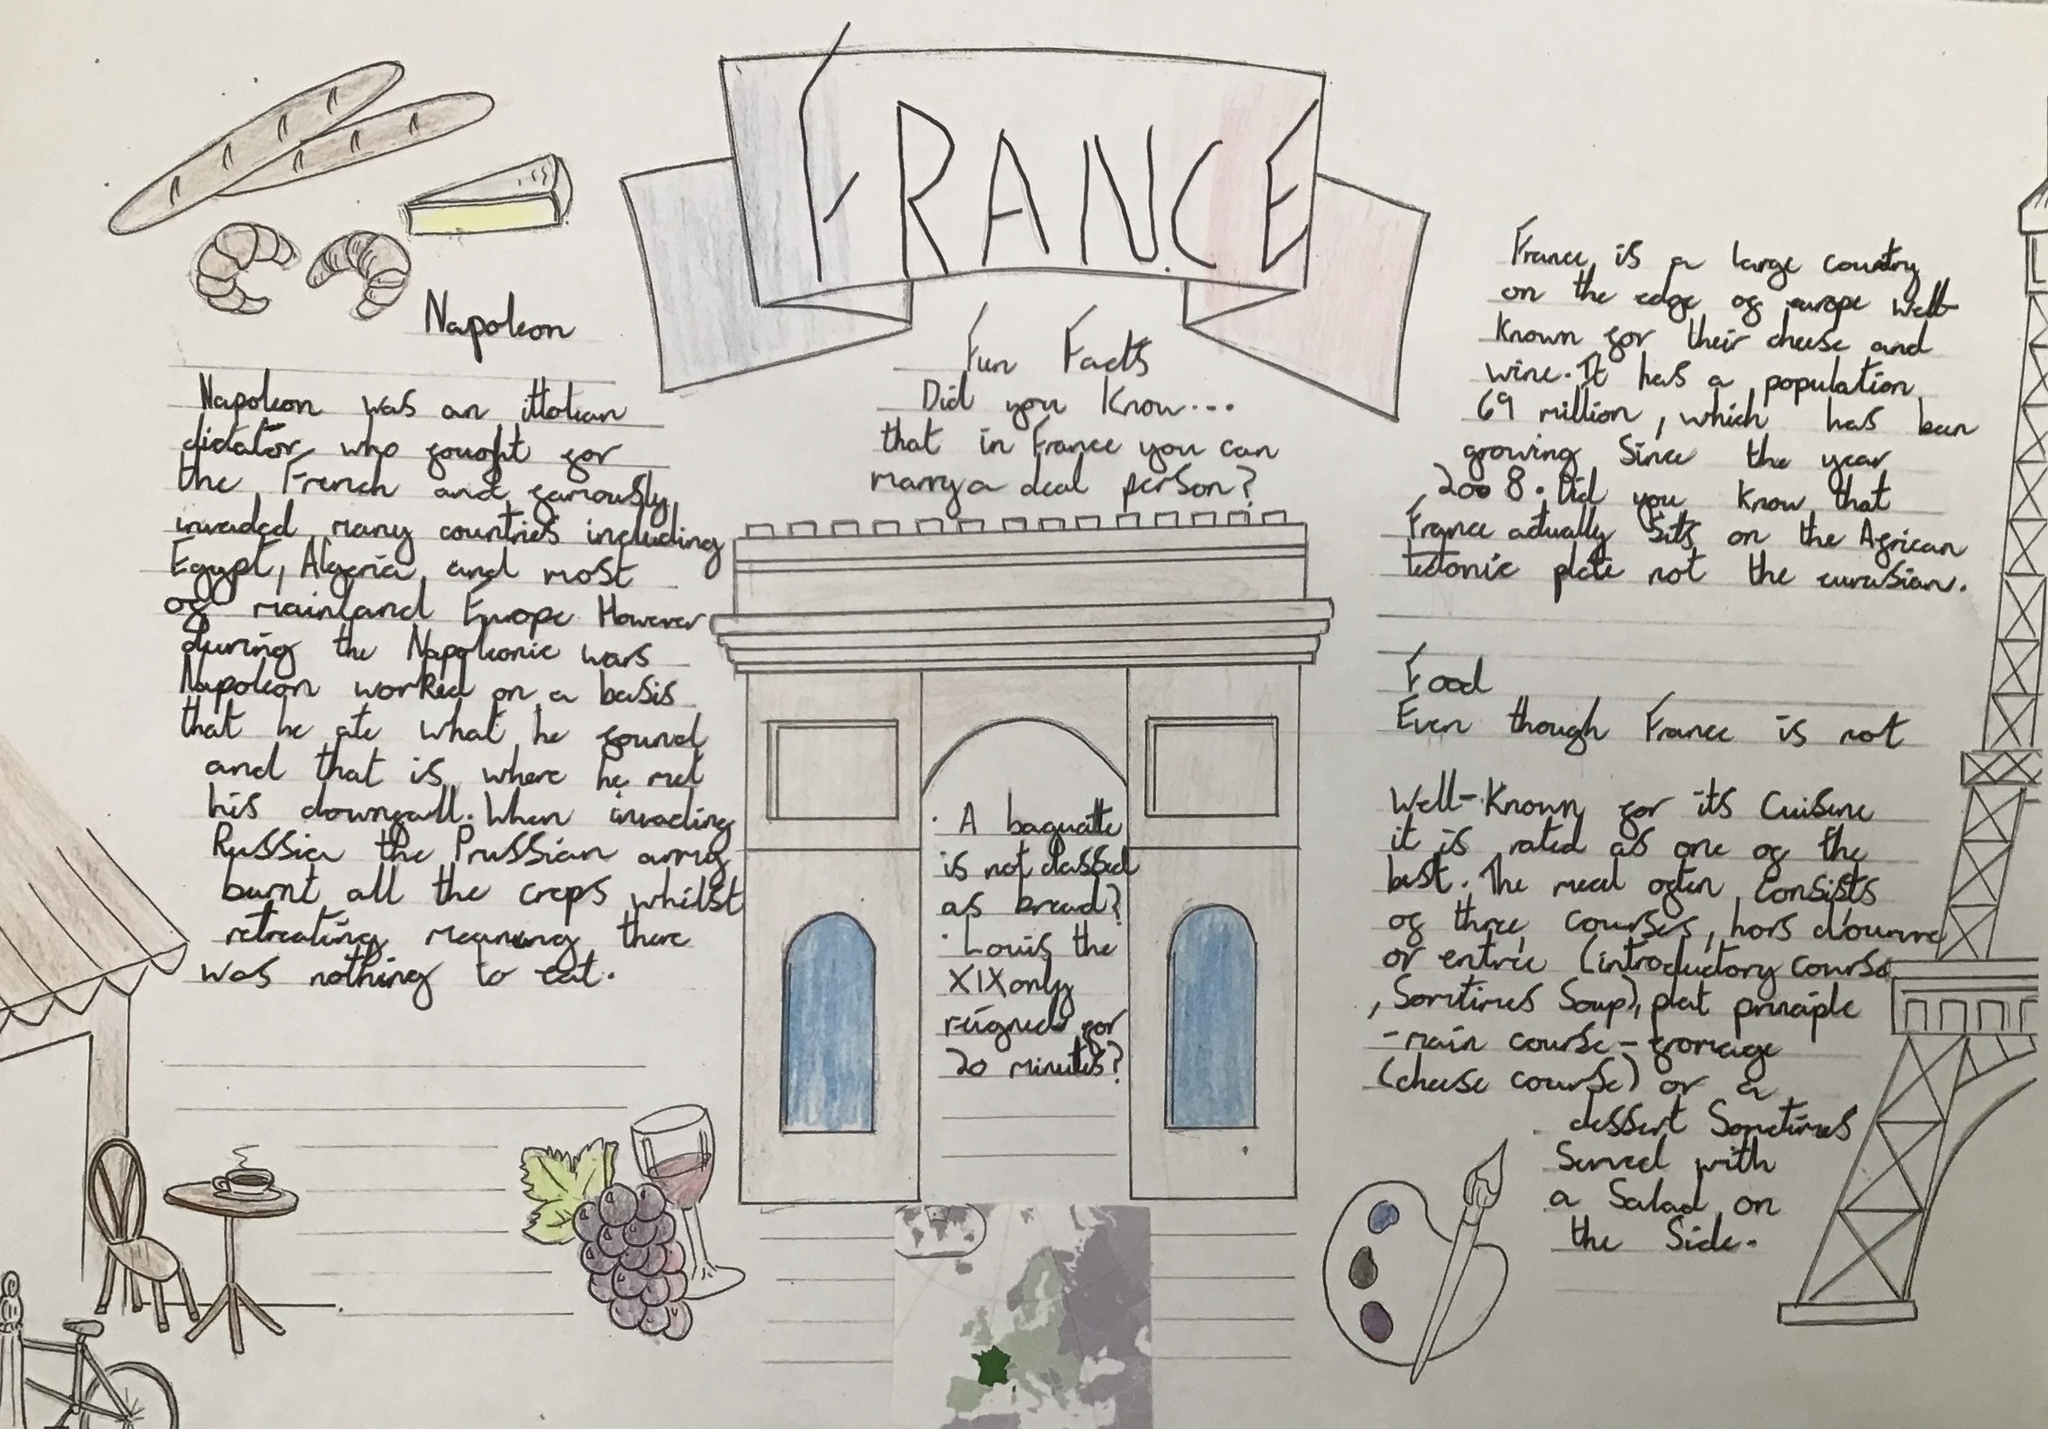 FRANCE
Napoleon
Napoleon was an ittalian
dictator who fought for
the French and famously
invaded many countries including
Egypt, Algeria, and most
of mainland Europe However
during the Napoleonic wars
Napoleon worked on a basis
that he ate what he found
and that is where he met
his downfall. When invading
Russia the Prussian army
burnt all the crops whilst
retreating meaning there
was nothing to eat.
Fun Facts
Did you Know...
that in France you can
marry a dead person?
· A baguatte
is not classed
as bread?
· Louis the
XIX only
reigned for
20 minutes?
France is a large country
on the edge of europe well
known for their cheese and
wine. It has a population
69 million, which has been
growing since the year
2008. Did you know that
France actually sits on the African
tectonic plate not the eurasian.
Food
Even though France is not
Well-Known for its Cuisine
it is rated as one of the
best. The meal often consists
of three courses, hors d'ouvre
or entrée (introductory course
, Sometimes Soup), plat principle
-main course- fromage
(cheese course) or a
dessert Sometimes
Served with
a Salad on
the Side.